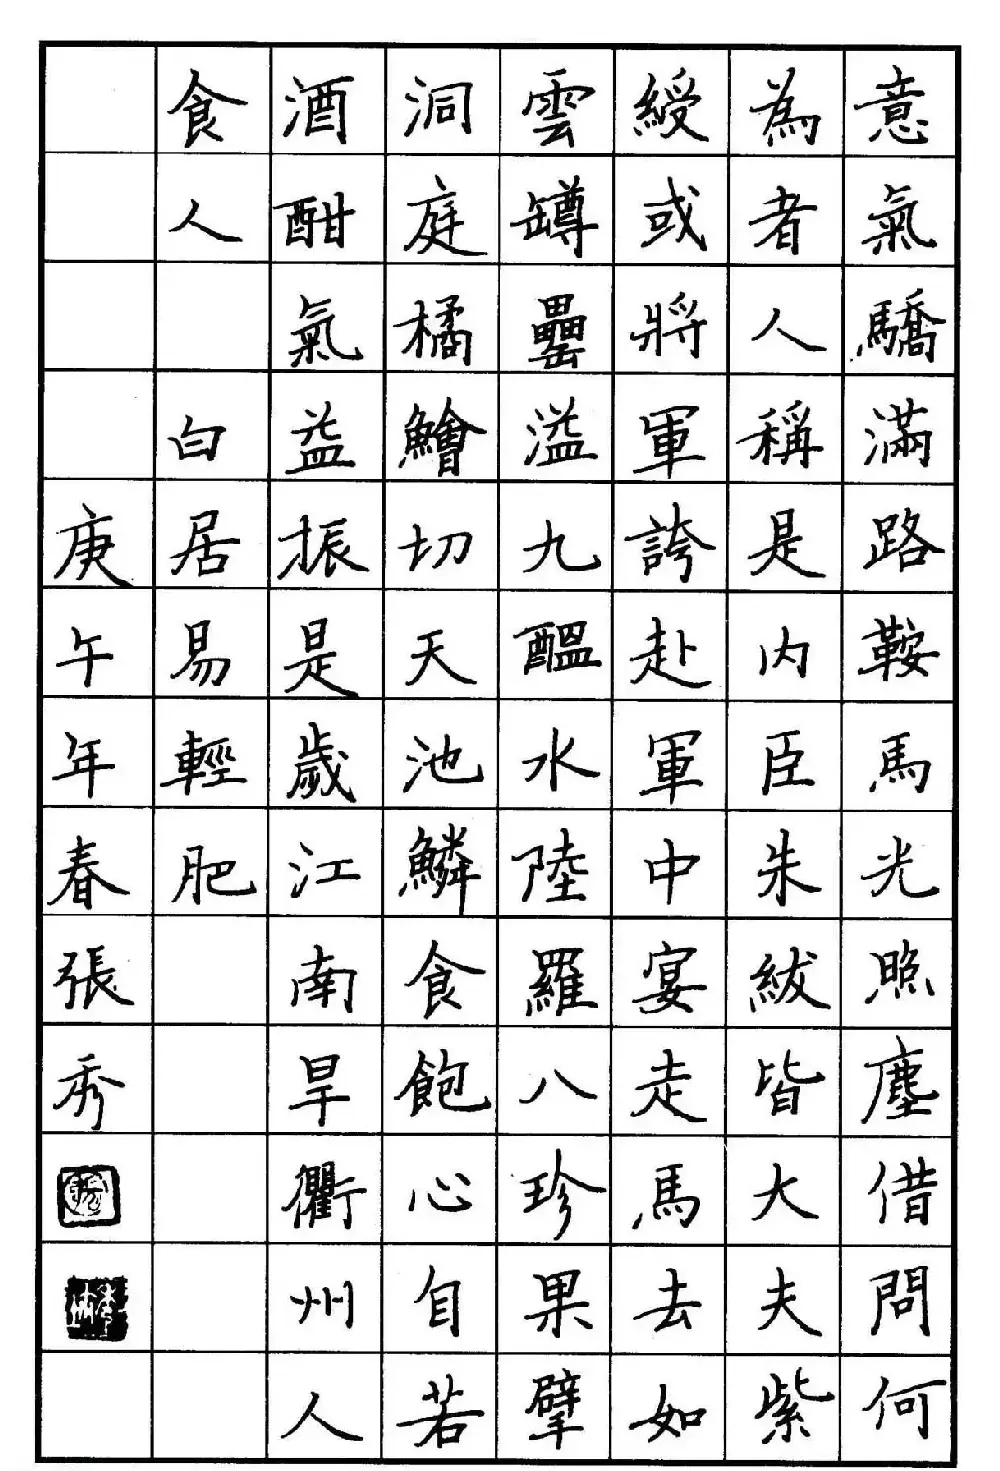 意氣驕滿路鞍馬光照塵借問何
為者人稱是内臣朱紱皆大夫紫
綬或將軍誇赴軍中宴走馬去如
雲罇罍溢九醞水陸羅八珍果擘
洞庭橘鱠切天池鱗食飽心自若
酒酣氣益振是歲江南旱衢州人
食人 白居易輕肥
庚午年春張秀